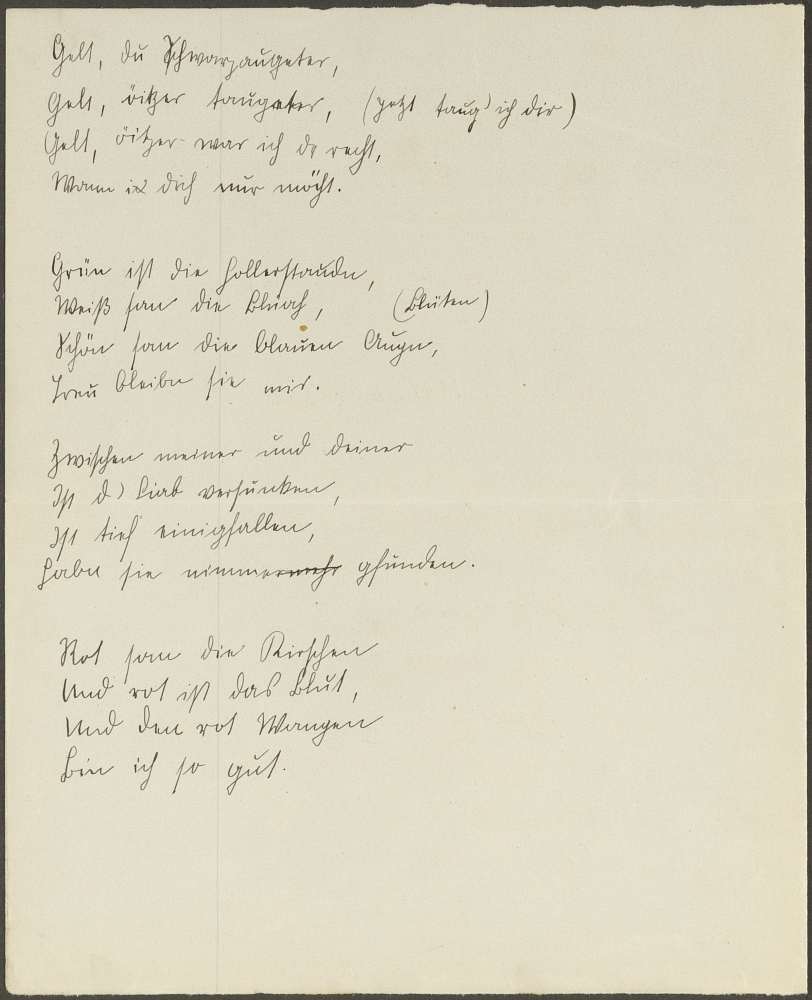 Gelt, du Schwarzaugeter,
Gelt, öitzer taugeter, (jetzt taug' ich dir)
Gelt, öitzer war ich da recht,
Wann i dich nur möcht.
Grün ist die Hollerstaudn,
Weiß san die Bluah, (Blüten)
Schön san die blauen Augn,
Treu bleibn sie mir.
Zwischen meiner und deiner
Ist d' Liab versunken,
Ist tief einigfallen,
Habn sie nimmermehr gfunden.
Rot san die Kirschen
Und rot ist das Blut,
Und den rot Wangen
Bin ich so gut.